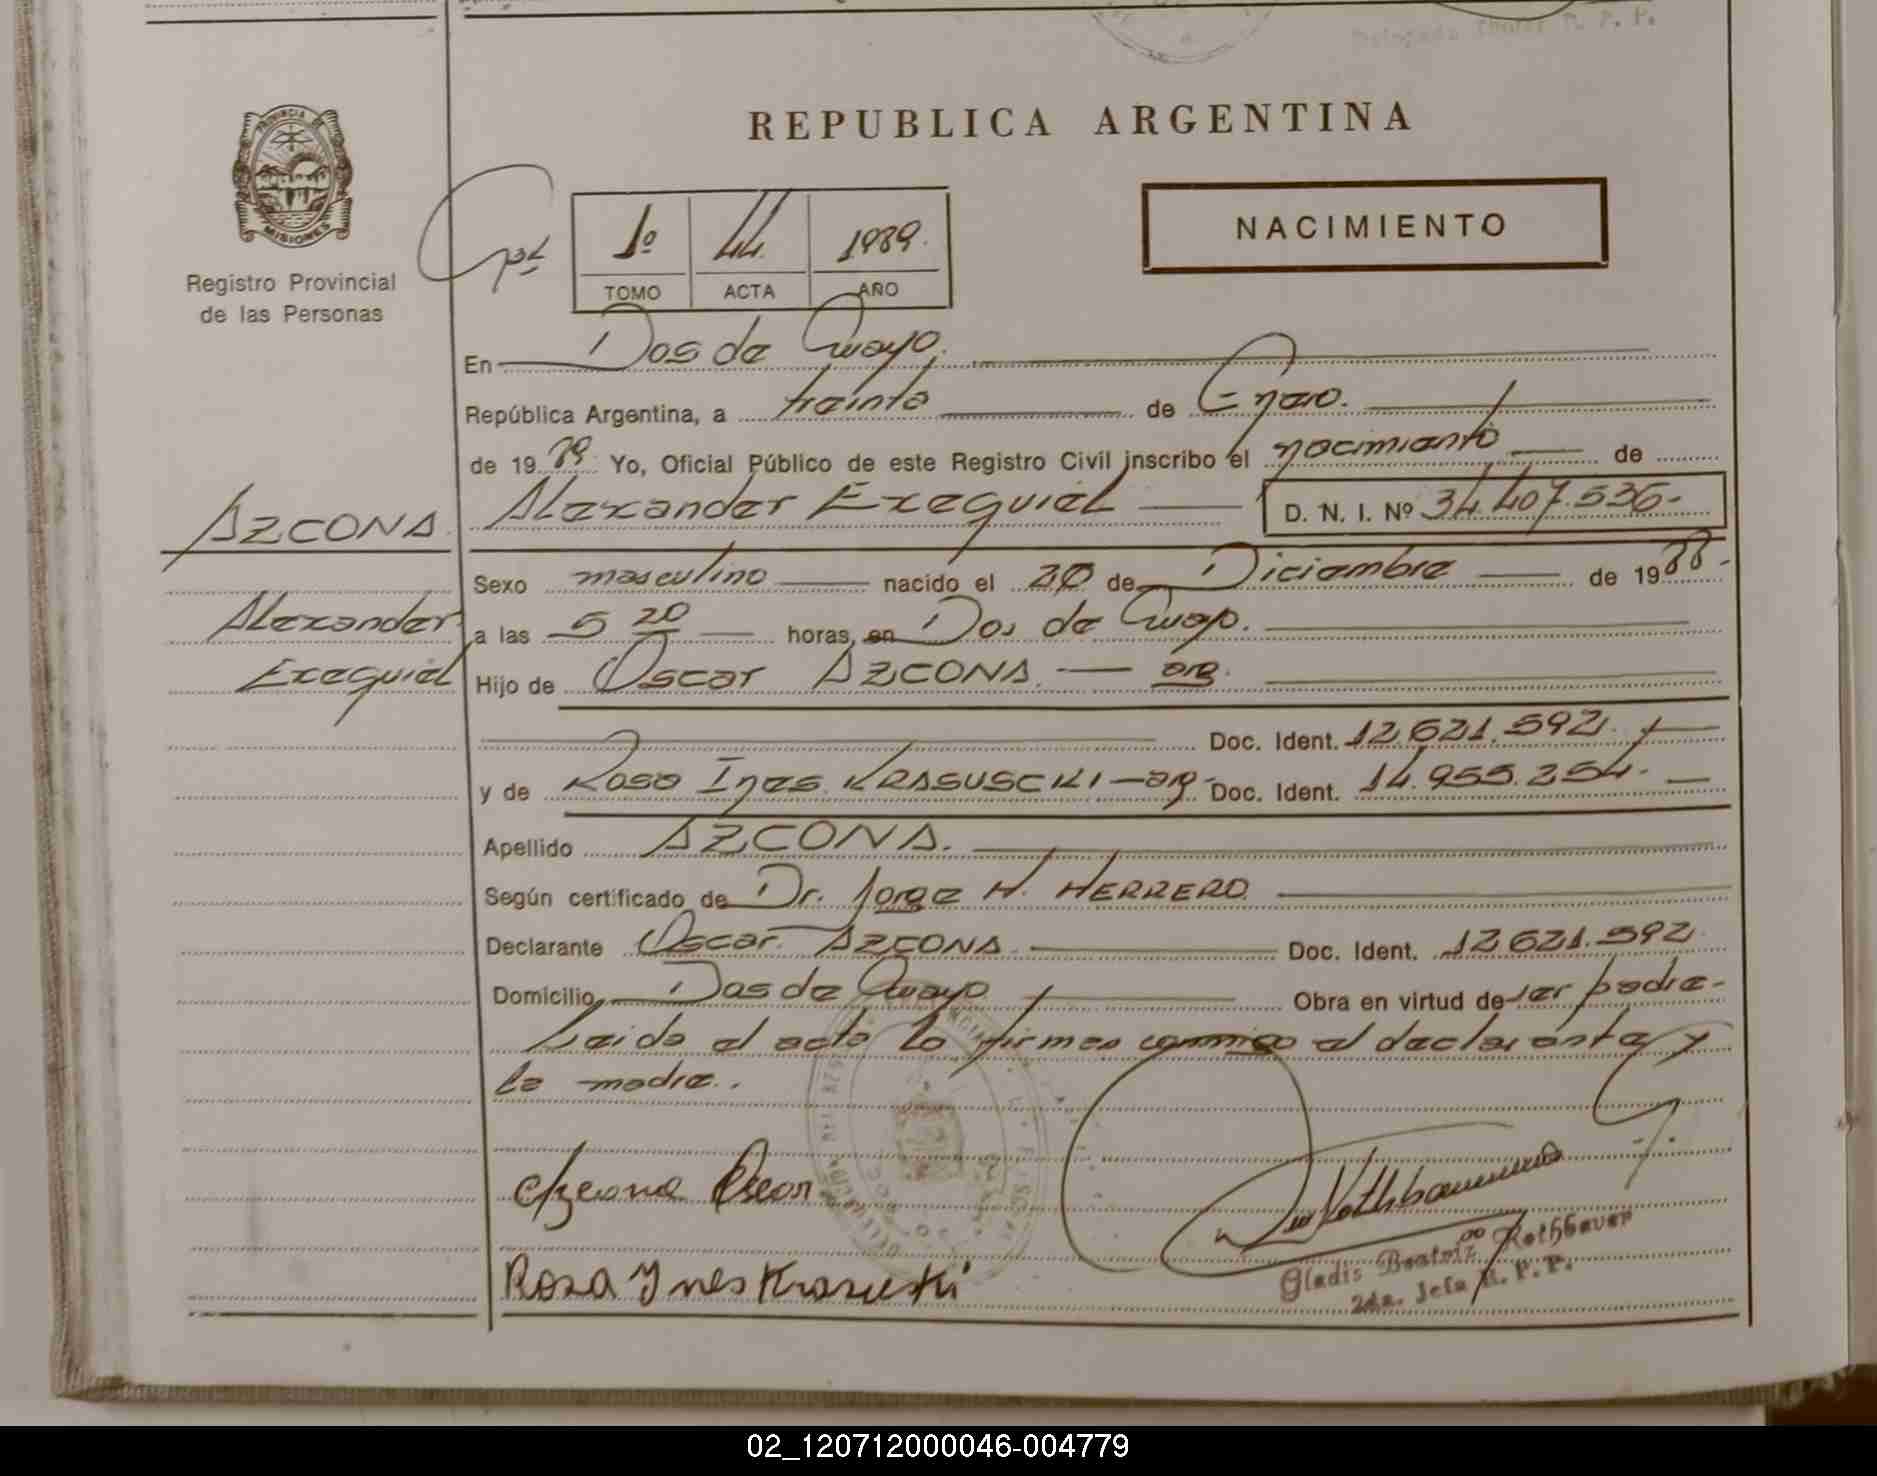 Delegada Titular R. P. P.
PROVINCIA
MISIONES
Registro Provincial
de las Personas
REPUBLICA ARGENTINA
NACIMIENTO
1º 44. 1989.
TOMO ACTA AÑO
En Dos de Mayo.
República Argentina, a treinta de Enero.
de 19 89 Yo, Oficial Público de este Registro Civil inscribo el nacimiento de
AZCONA. Alexander Exequiel D. N. I. Nº 34.407.536-
Sexo masculino nacido el 20 de Diciembre de 19 88-
Alexander a las 5 20 horas, en Dos de Mayo.
Exequiel Hijo de Oscar AZCONA. — arg.
Doc. Ident. 12.621.592.
y de Rosa Ines KRASUSCKI — arg- Doc. Ident. 14.955.254.
Apellido AZCONA.
Según certificado de Dr. Jorge H. HERRERO.
Declarante Oscar AZCONA. Doc. Ident. 12.621.592.
Domicilio Dos de Mayo Obra en virtud de ser padre-
Leida el acta la firman conmigo el declarante y
la madre.
Azcona Oscar
Rosa Ynes Krasuski
Gladis Beatriz Rothbauer
2da. Jefa R. P. P.
02_120712000046-004779